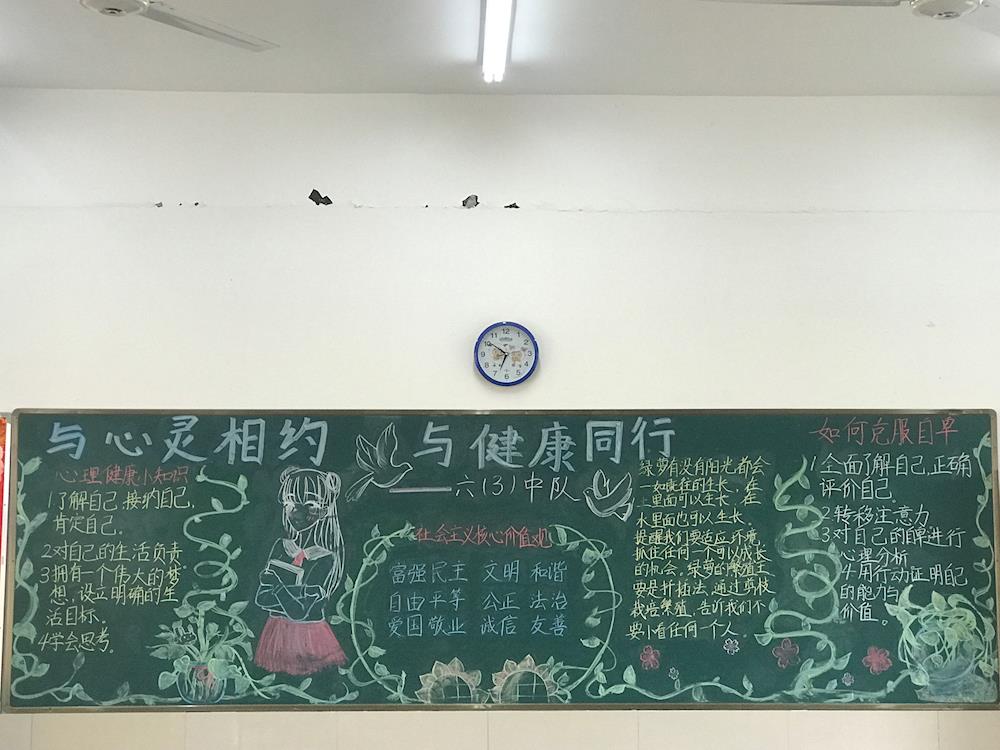 12
1
2
3
4
5
6
7
8
9
10
11
与心灵相约 与健康同行
——六(3)中队
心理健康小知识
1了解自己,接纳自己,
肯定自己.
2对自己的生活负责
3拥有一个伟大的梦
想,设立明确的生
活目标.
4学会思考。
社会主义核心价值观
富强 民主 文明 和谐
自由 平等 公正 法治
爱国 敬业 诚信 友善
绿萝有没有阳光都会
一如既往的生长,在
土里面可以生长,在
水里面也可以生长.
提醒我们要适应环境,
抓住任何一个可以成长
的机会。绿萝的繁殖主
要是扦插法,通过剪枝
栽培繁殖,告诉我们不
要小看任何一个人.
如何克服自卑
1全面了解自己,正确
评价自己.
2转移注意力
3对自己的自卑进行
心理分析
4用行动证明自己
的能力与
价值。